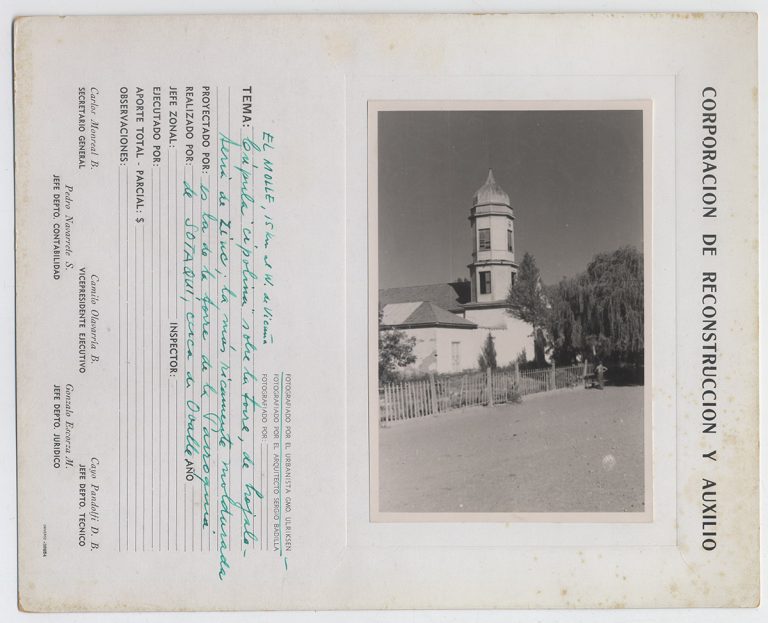 CORPORACION DE RECONSTRUCCION Y AUXILIO
FOTOGRAFIADO POR EL URBANISTA GMO. ULRIKSEN
FOTOGRAFIADO POR EL ARQUITECTO SERGIO BADILLA
FOTOGRAFIADO POR:
EL MOLLE, 15 km al W. de Vicuña
TEMA: Cúpula "cipolina" sobre la torre, de hojala-
tería de zinc; la más ricamente moldurada
PROYECTADO POR: es la de la torre de la Parroquia
REALIZADO POR: de SOTAQUI, cerca de Ovalle AÑO
JEFE ZONAL: INSPECTOR:
EJECUTADO POR:
APORTE TOTAL - PARCIAL: $
OBSERVACIONES:
Carlos Monreal B. Camilo Olavarría B. Cayo Pandolfi D. B.
SECRETARIO GENERAL VICEPRESIDENTE EJECUTIVO JEFE DEPTO. TECNICO
Pedro Navarrete S. Gonzalo Escorza M.
JEFE DEPTO. CONTABILIDAD JEFE DEPTO. JURIDICO